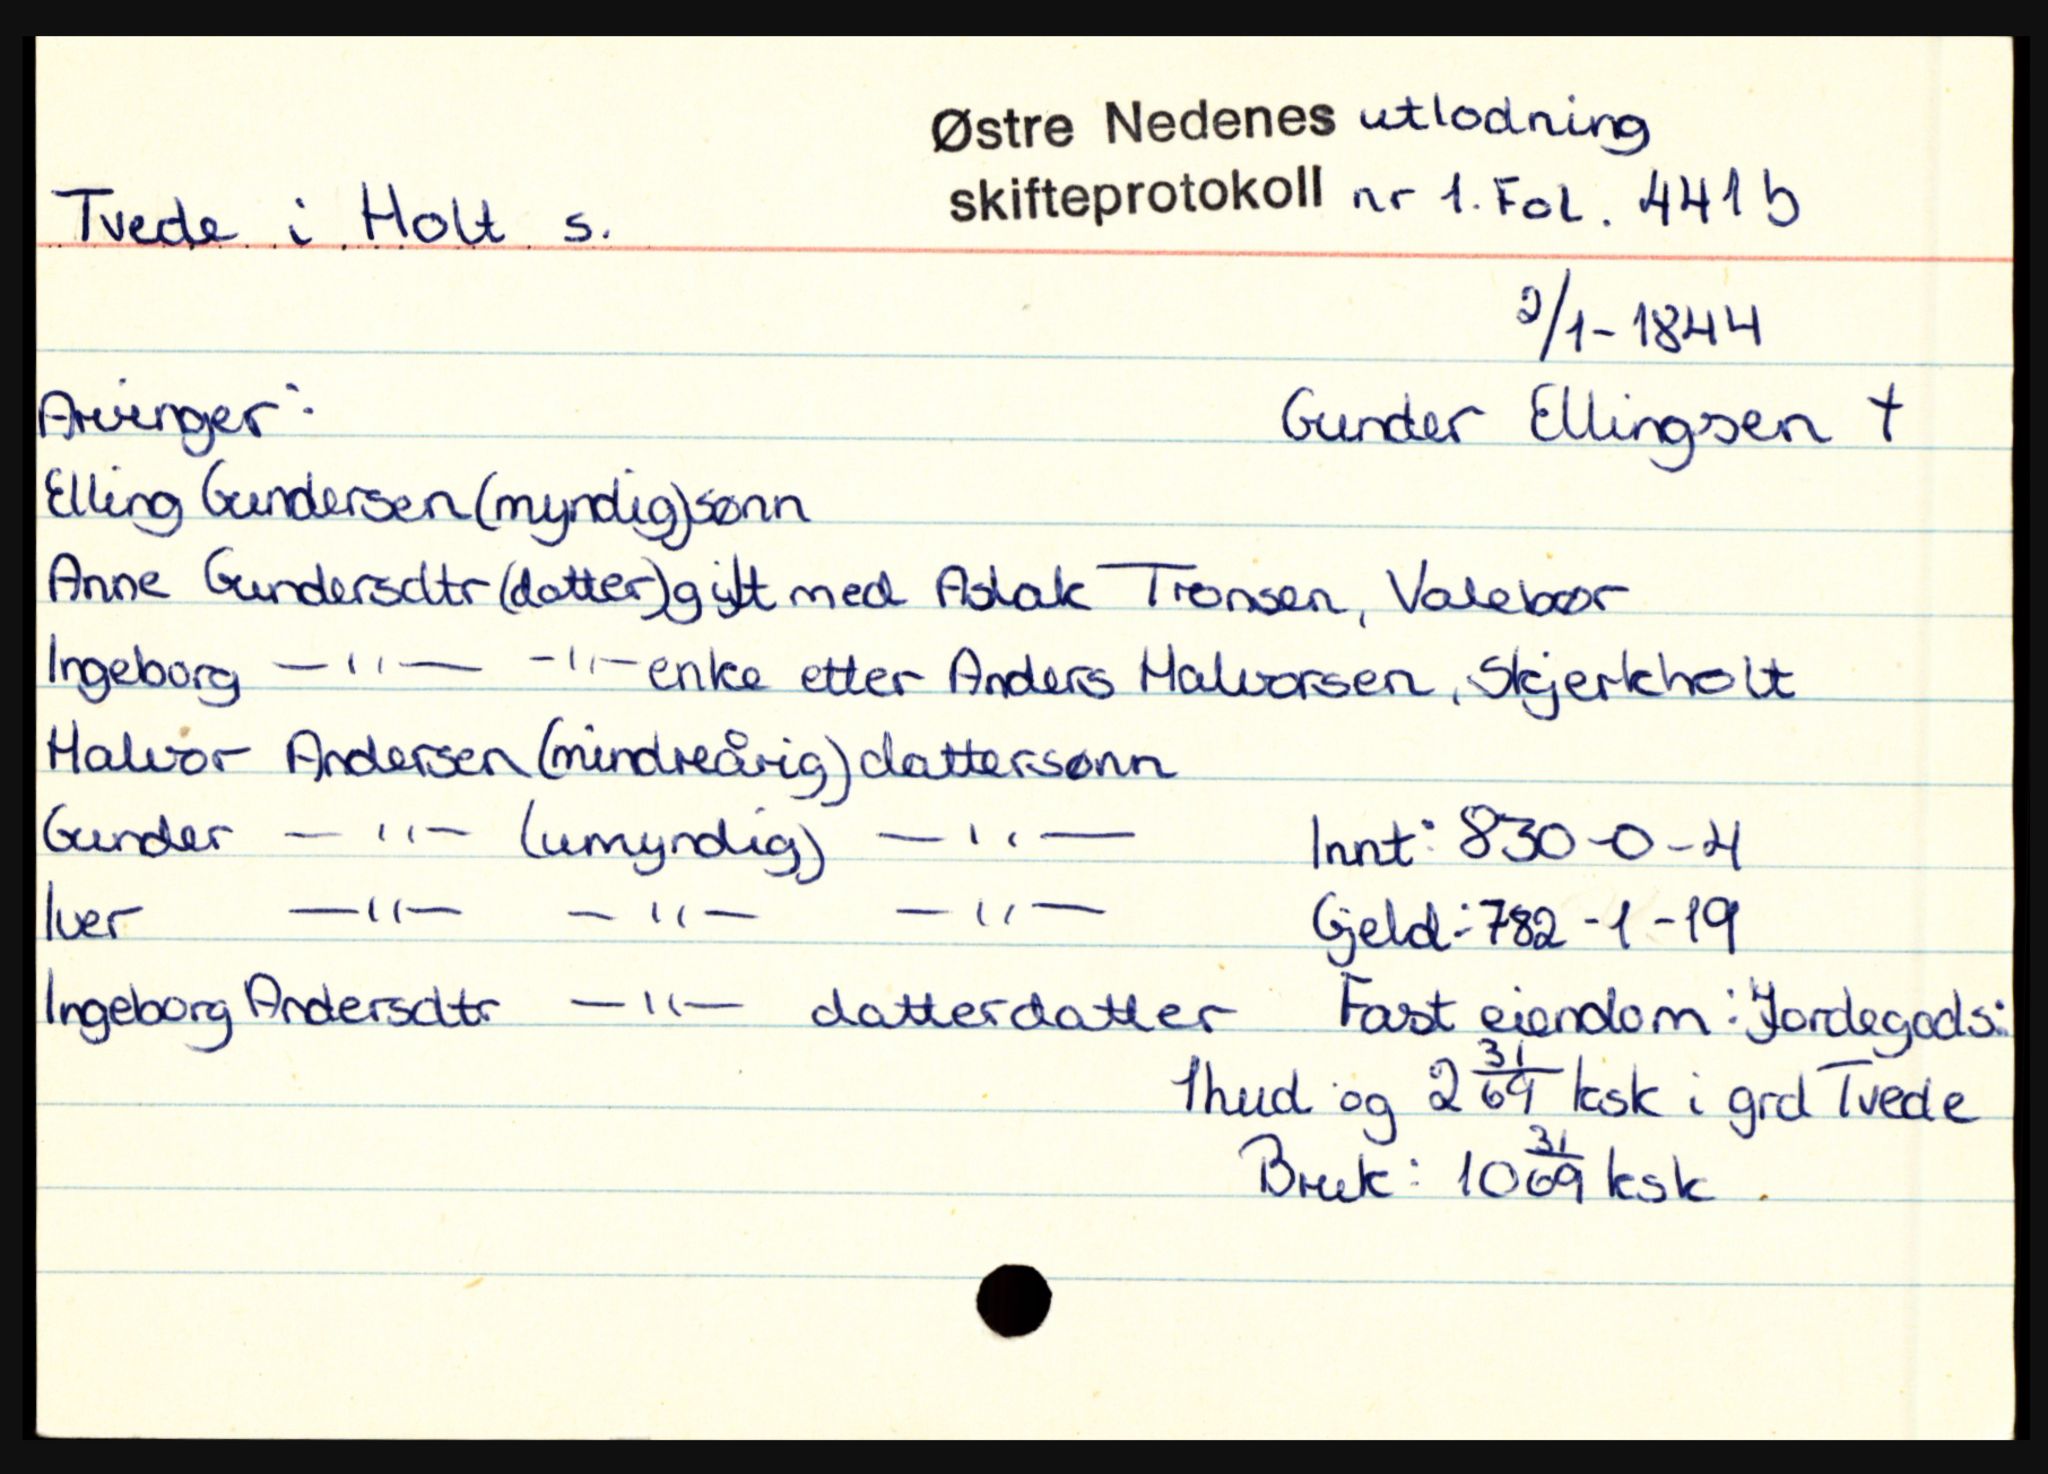 Østre Nedenes utlodning
Tvede i Holt s. skifteprotokoll nr 1. Fol. 441 b
2/1-1844
Arvinger: Gunder Ellingsen †
Elling Gundersen (myndig) sønn
Anne Gundersdtr (datter) gift med Aslak Tronsen, Valebør
Ingeborg —"— —"— enke etter Anders Halvorsen, Skjerkholt
Halvor Andersen (mindreårig) dattersønn
Gunder —"— (umyndig) —"— Innt: 830-0-4
Iver —"— —"— —"— Gjeld: 782-1-19
Ingeborg Andersdtr —"— datterdatter Fast eiendom: Jordegods:
1hud og 2 31/69 ksk i grd Tvede
Bruk: 10 31/69 ksk